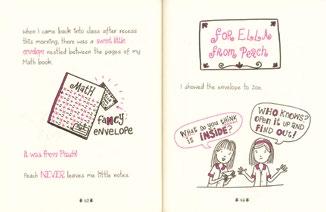 when I came back into class after recess
this morning, there was a sweet little
envelope nestled between the pages of my
Math book.
Math
fancy
ENVELOPE
It was from Peach!
Peach NEVER leaves me little notes.
FOR ELLA
from Peach
I showed the envelope to Zoe.
What do you think
is INSIDE?
WHO KNOWS?
OPEN it up and
FIND OUT!